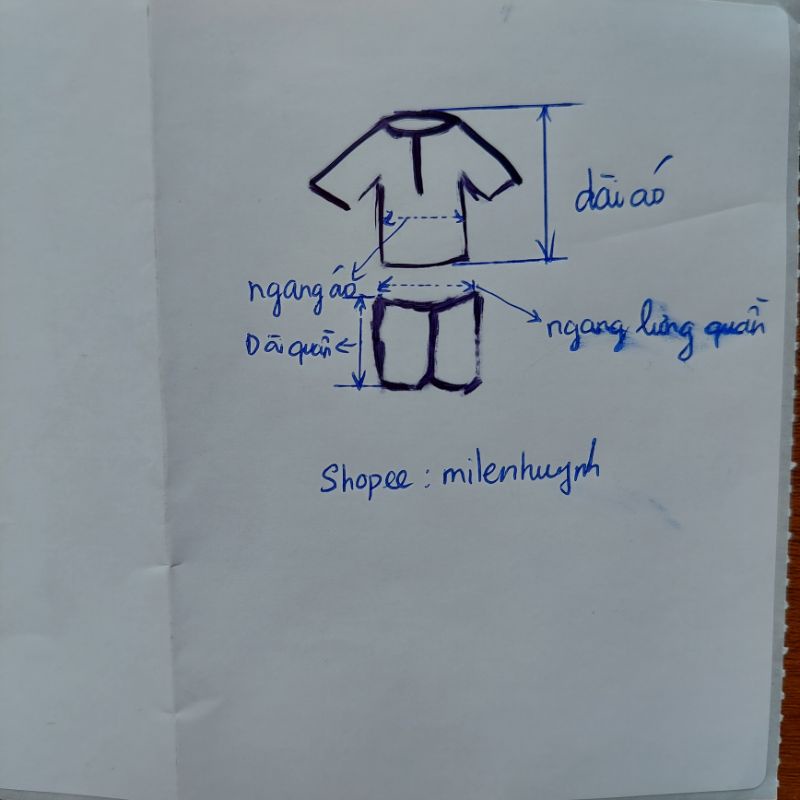 dài áo
ngang áo
Dài quần
ngang lưng quần
Shopee : milenhuynh